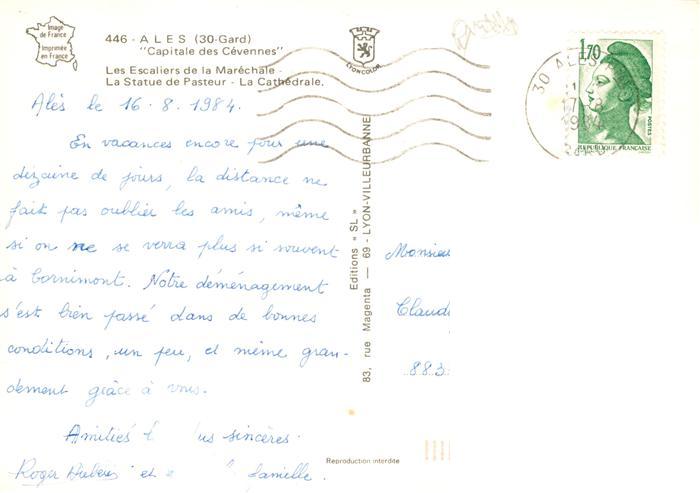 Image
de France
Imprimée
en France
446 - ALES (30-Gard)
"Capitale des Cévennes"
Les Escaliers de la Maréchale -
La Statue de Pasteur - La Cathédrale.
LYONCOLOR
1,70
30 ALES
1984
POSTES
REPUBLIQUE FRANÇAISE
Alès le 16.8.1984.
En vacances encore pour une
dizaine de jours, la distance ne
fait pas oublier les amis, même
si on ne se verra plus si souvent
à Cornimont. Notre déménagement
s'est bien passé dans de bonnes
conditions, un peu, et même gran-
dement grâce à vous.
Amitiés us sincères.
Roger et famille.
Editions « SL »
83, rue Magenta — 69 - LYON-VILLEURBANNE
Monsieu
Claud
883
Reproduction interdite